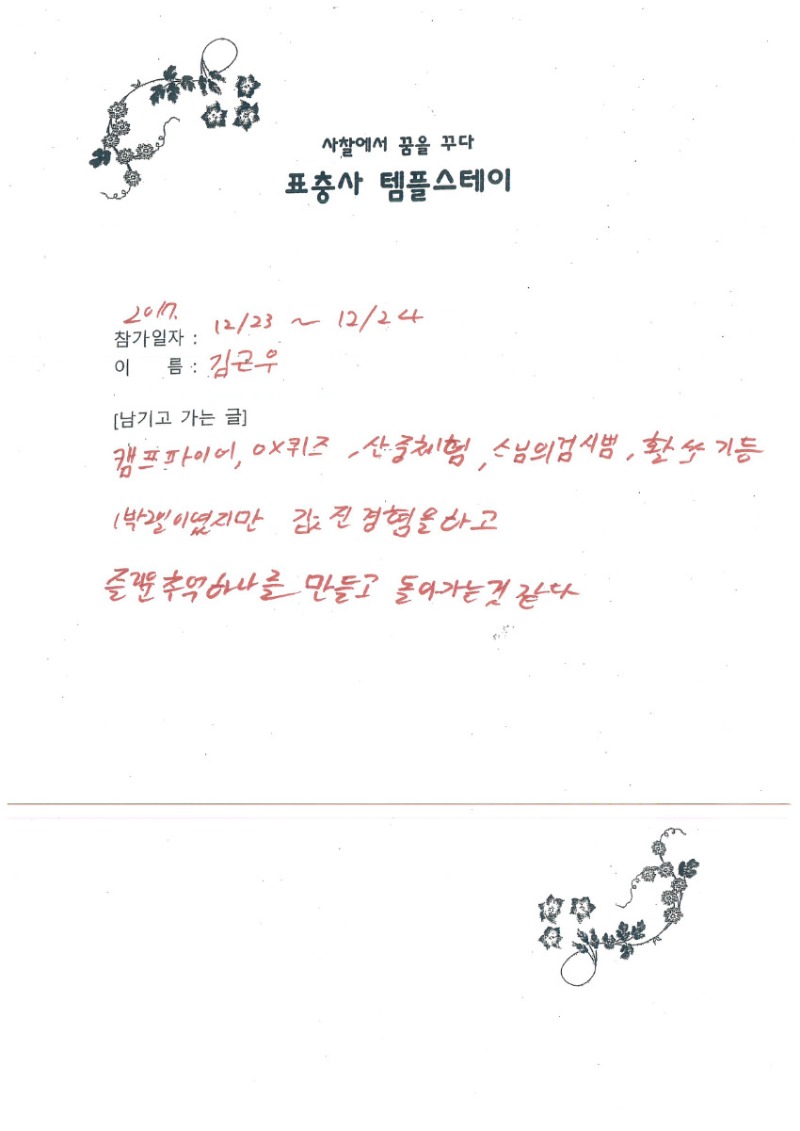 사찰에서 꿈을 꾸다
표충사 템플스테이
2017.
참가일자 : 12/23 ~ 12/24
이 름 : 김근우
[남기고 가는 글]
캠프파이어, OX퀴즈, 산중체험, 스님의검시범, 활쏘기등
1박2일이였지만 값진경험을하고
즐거운추억하나를 만들고 돌아가는것 같다